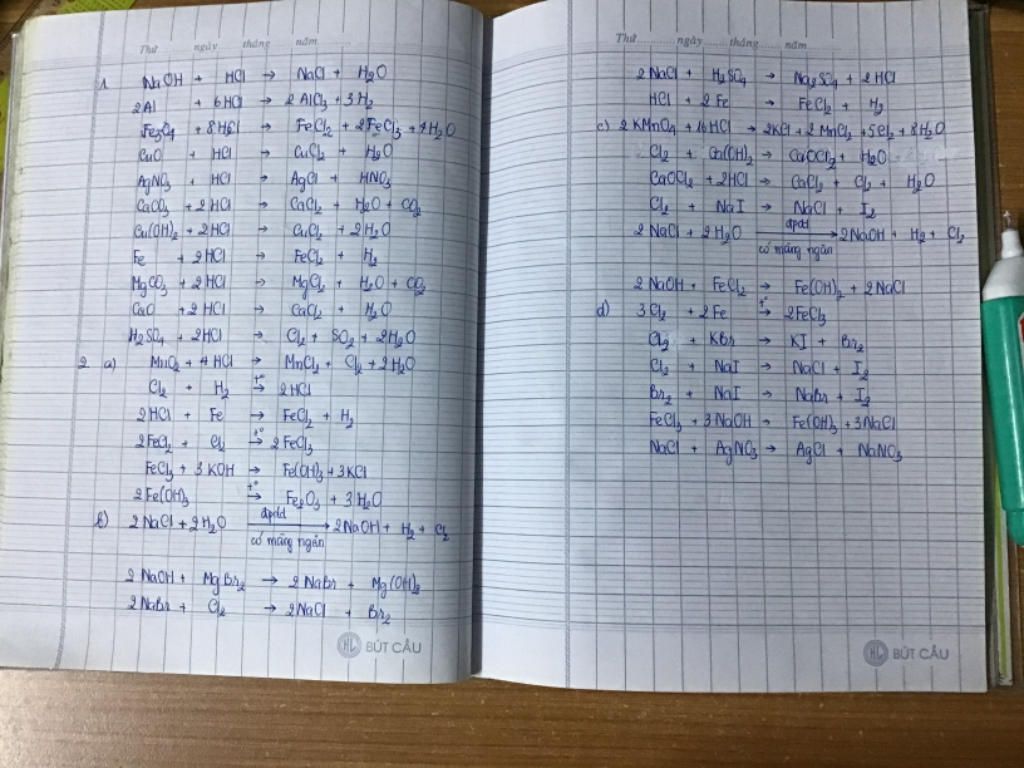 Thứ ngày tháng năm
1 NaOH + HCl → NaCl + H₂O
2Al + 6HCl → 2AlCl₃ + 3H₂
Fe₃O₄ + 8HCl → FeCl₂ + 2FeCl₃ + 4H₂O
CuO + HCl → CuCl₂ + H₂O
AgNO₃ + HCl → AgCl + HNO₃
CaCO₃ + 2HCl → CaCl₂ + H₂O + CO₂
Cu(OH)₂ + 2HCl → CuCl₂ + 2H₂O
Fe + 2HCl → FeCl₂ + H₂
MgCO₃ + 2HCl → MgCl₂ + H₂O + CO₂
CaO + 2HCl → CaCl₂ + H₂O
H₂SO₄ + 2HCl → Cl₂ + SO₂ + 2H₂O
2 a) MnO₂ + 4HCl → MnCl₂ + Cl₂ + 2H₂O
Cl₂ + H₂ →(t°) 2HCl
2HCl + Fe → FeCl₂ + H₂
2FeCl₂ + Cl₂ →(t°) 2FeCl₃
FeCl₃ + 3KOH → Fe(OH)₃ + 3KCl
2Fe(OH)₃ →(t°) Fe₂O₃ + 3H₂O
b) 2NaCl + 2H₂O →(đpdd, có màng ngăn) 2NaOH + H₂ + Cl₂
2NaOH + MgBr₂ → 2NaBr + Mg(OH)₂
2NaBr + Cl₂ → 2NaCl + Br₂
HL BÚT CÂU
Thứ ngày tháng năm
2NaCl + H₂SO₄ → Na₂SO₄ + 2HCl
HCl + 2Fe → FeCl₂ + H₂
c) 2KMnO₄ + 16HCl → 2KCl + 2MnCl₂ + 5Cl₂ + 8H₂O
Cl₂ + Ca(OH)₂ → CaOCl₂ + H₂O
CaOCl₂ + 2HCl → CaCl₂ + Cl₂ + H₂O
Cl₂ + NaI → NaCl + I₂
2NaCl + 2H₂O →(đpdd, có màng ngăn) 2NaOH + H₂ + Cl₂
2NaOH + FeCl₂ → Fe(OH)₂ + 2NaCl
d) 3Cl₂ + 2Fe →(t°) 2FeCl₃
Cl₂ + KBr → KI + Br₂
Cl₂ + NaI → NaCl + I₂
Br₂ + NaI → NaBr + I₂
FeCl₃ + 3NaOH → Fe(OH)₃ + 3NaCl
NaCl + AgNO₃ → AgCl + NaNO₃
HL BÚT CÂU